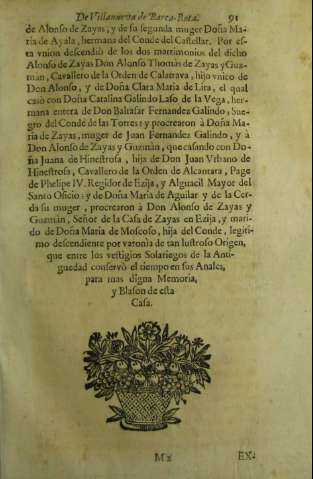 De Villanueva de Barca-Rota. 91
de Alonso de Zayas, y de su segunda muger Doña Ma-
ria de Ayala, hermana del Conde del Castellar. Por es-
ta vnion descendiò de los dos matrimonios del dicho
Alonso de Zayas Don Alonso Thomàs de Zayas y Guz-
man, Cavallero de la Orden de Calatrava, hijo vnico de
Don Alonso, y de Doña Clara Maria de Lira, el qual
casò con Doña Catalina Galindo Laso de la Vega, her-
mana entera de Don Baltasar Fernandez Galindo, Sue-
gro del Conde de las Torres: y procrearon à Doña Ma-
ria de Zayas, muger de Juan Fernandez Galindo, y à
Don Alonso de Zayas y Guzmàn, que casando con Do-
ña Juana de Hinestrosa, hija de Don Juan Vrbano de
Hinestrosa, Cavallero de la Orden de Alcantara, Page
de Phelipe IV. Regidor de Ezija, y Alguacil Mayor del
Santo Oficio: y de Doña Maria de Aguilar y de la Cer-
da su muger, procrearon à Don Alonso de Zayas y
Guzmàn, Señor de la Casa de Zayas en Ezija, y mari-
do de Doña Maria de Moscoso, hija del Conde, legiti-
mo descendiente por varonia de tan lustroso Origen,
que entre los vestigios Solariegos de la Anti-
guedad conservò el tiempo en sus Anales,
para mas digna Memoria,
y Blason de esta
Casa.
M2 EX-